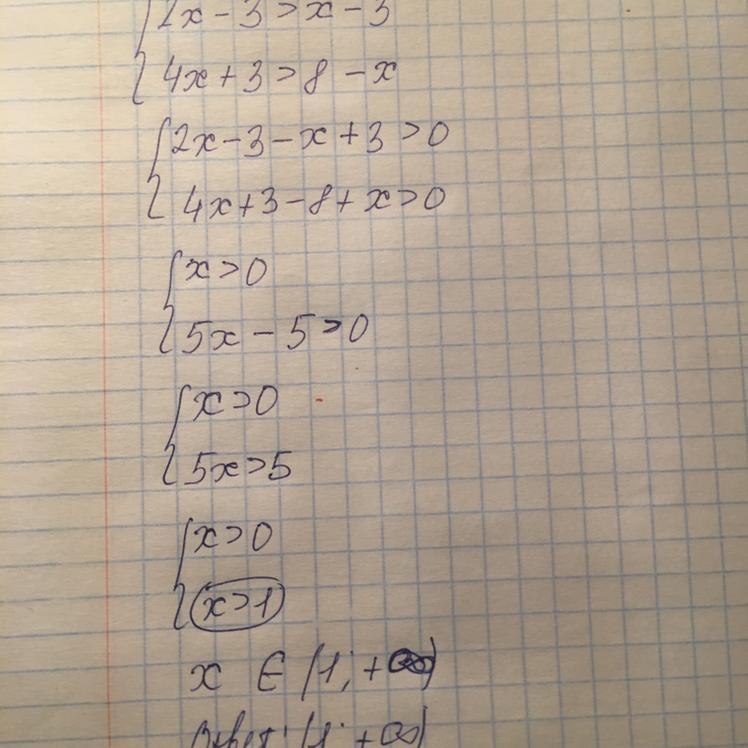 2x - 3 > x - 3
4x + 3 > 8 - x
2x - 3 - x + 3 > 0
4x + 3 - 8 + x > 0
x > 0
5x - 5 > 0
x > 0
5x > 5
x > 0
x > 1
x ∈ (1; +∞)
Ответ: (1; +∞)